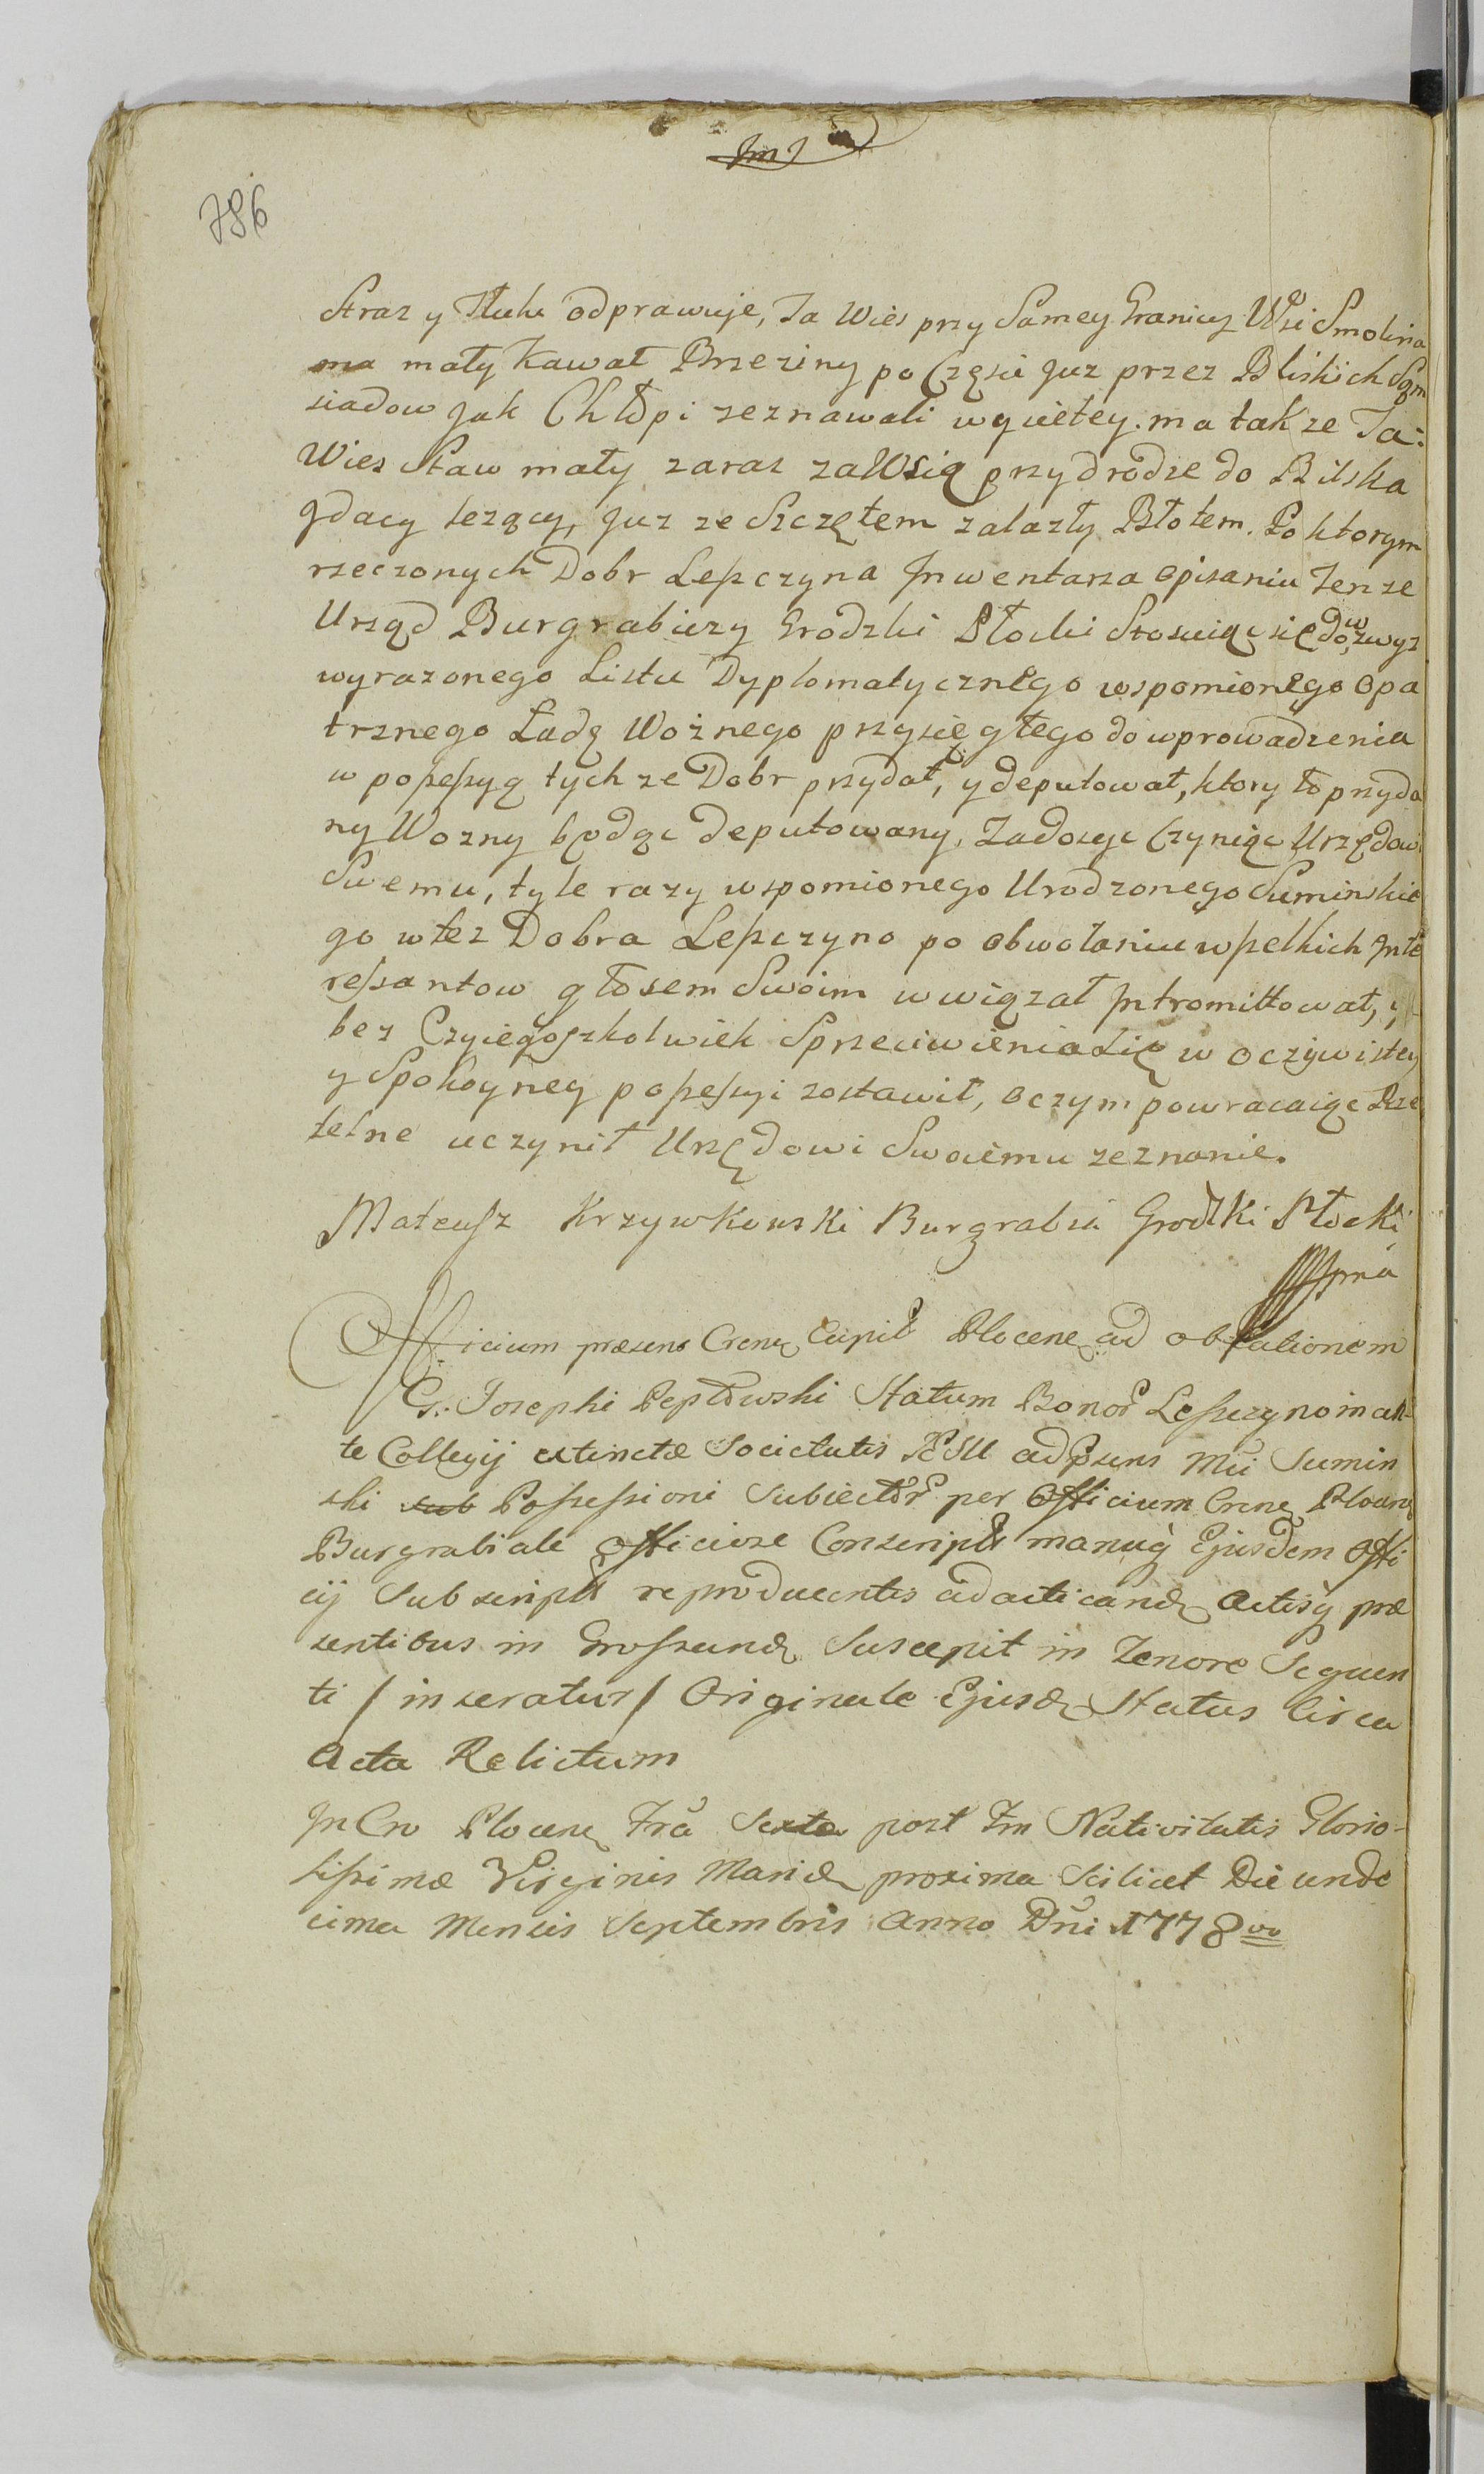 786
Straz y Tłuke odprawuje, Ta Wies przy Samey Granicy Wsi Smolina
ma mały Kawał Brzeziny po Częsci Juz przez Bliskich Sąm
siadow Jak Chłopi zeznawali wycietey. ma takze Ta:
Wies Staw mały zaraz za Wsią przy drodze do Bilska
Jdacy lezący, Juz ze Szczętem zalazły Błotem. Po ktorym
rzeczonych Dobr Leszczyna Jnwentarza opisaniu Tenze
Urząd Burgrabiczy Grodzki Płocki Stosuiąc się do wzwyz
wyrazonego Listu Dyplomatycznego wspomionego opa
trznego Ladę Woźnego przysięgłego do wprowadzenia
w possessyą tychze Dobr przydał, y deputował, ktory to przyda
ny Wozny będąc deputowany, Zadosyc Czyniąc Urzędowi
Swemu, tyle razy wspomionego Urodzonego Suminskie
go w tez Dobra Leszczyno po obwołaniu wszelkich Jnte
ressantow głosem Swoim wwiązał Jntromittował, y
bez Czyiegoszkolwiek Sprzeciwienia Się w oczywistey
y Spokoyney possessyi zostawił, oczym powracaiąc Rze
telne uczynił Urzędowi Swoiemu zeznanie.
Mateusz Krzywkowski Burgrabia Grodzki Płocki
mpria
Officium præsens Crene Capit Plocene ad oblationem
G. Josephi Pepłowski Statum Bonor Leszczyno in an
te Collegij extinctæ Societatis JESU ad Psens Mci Sumin
ski sub Possessioni Subiector per Officium Crene Plocene
Burgrabiale officiose Conscript manuq Ejusdem Offi
cij Subscript reproducentis ad acticand Actisq præ
sentibus in Grossand Suscepit in Tenore Sequen
ti / inseratur / Originale Ejusd Status Circa
Acta Relictum
Jn Cro Plocen Fra Sexta post Fm Nativitatis Glorio-
sissimæ Virginis Mariæ proxima Scilicet Die unde
cima Mensis Septembris Anno Dni 1778vo